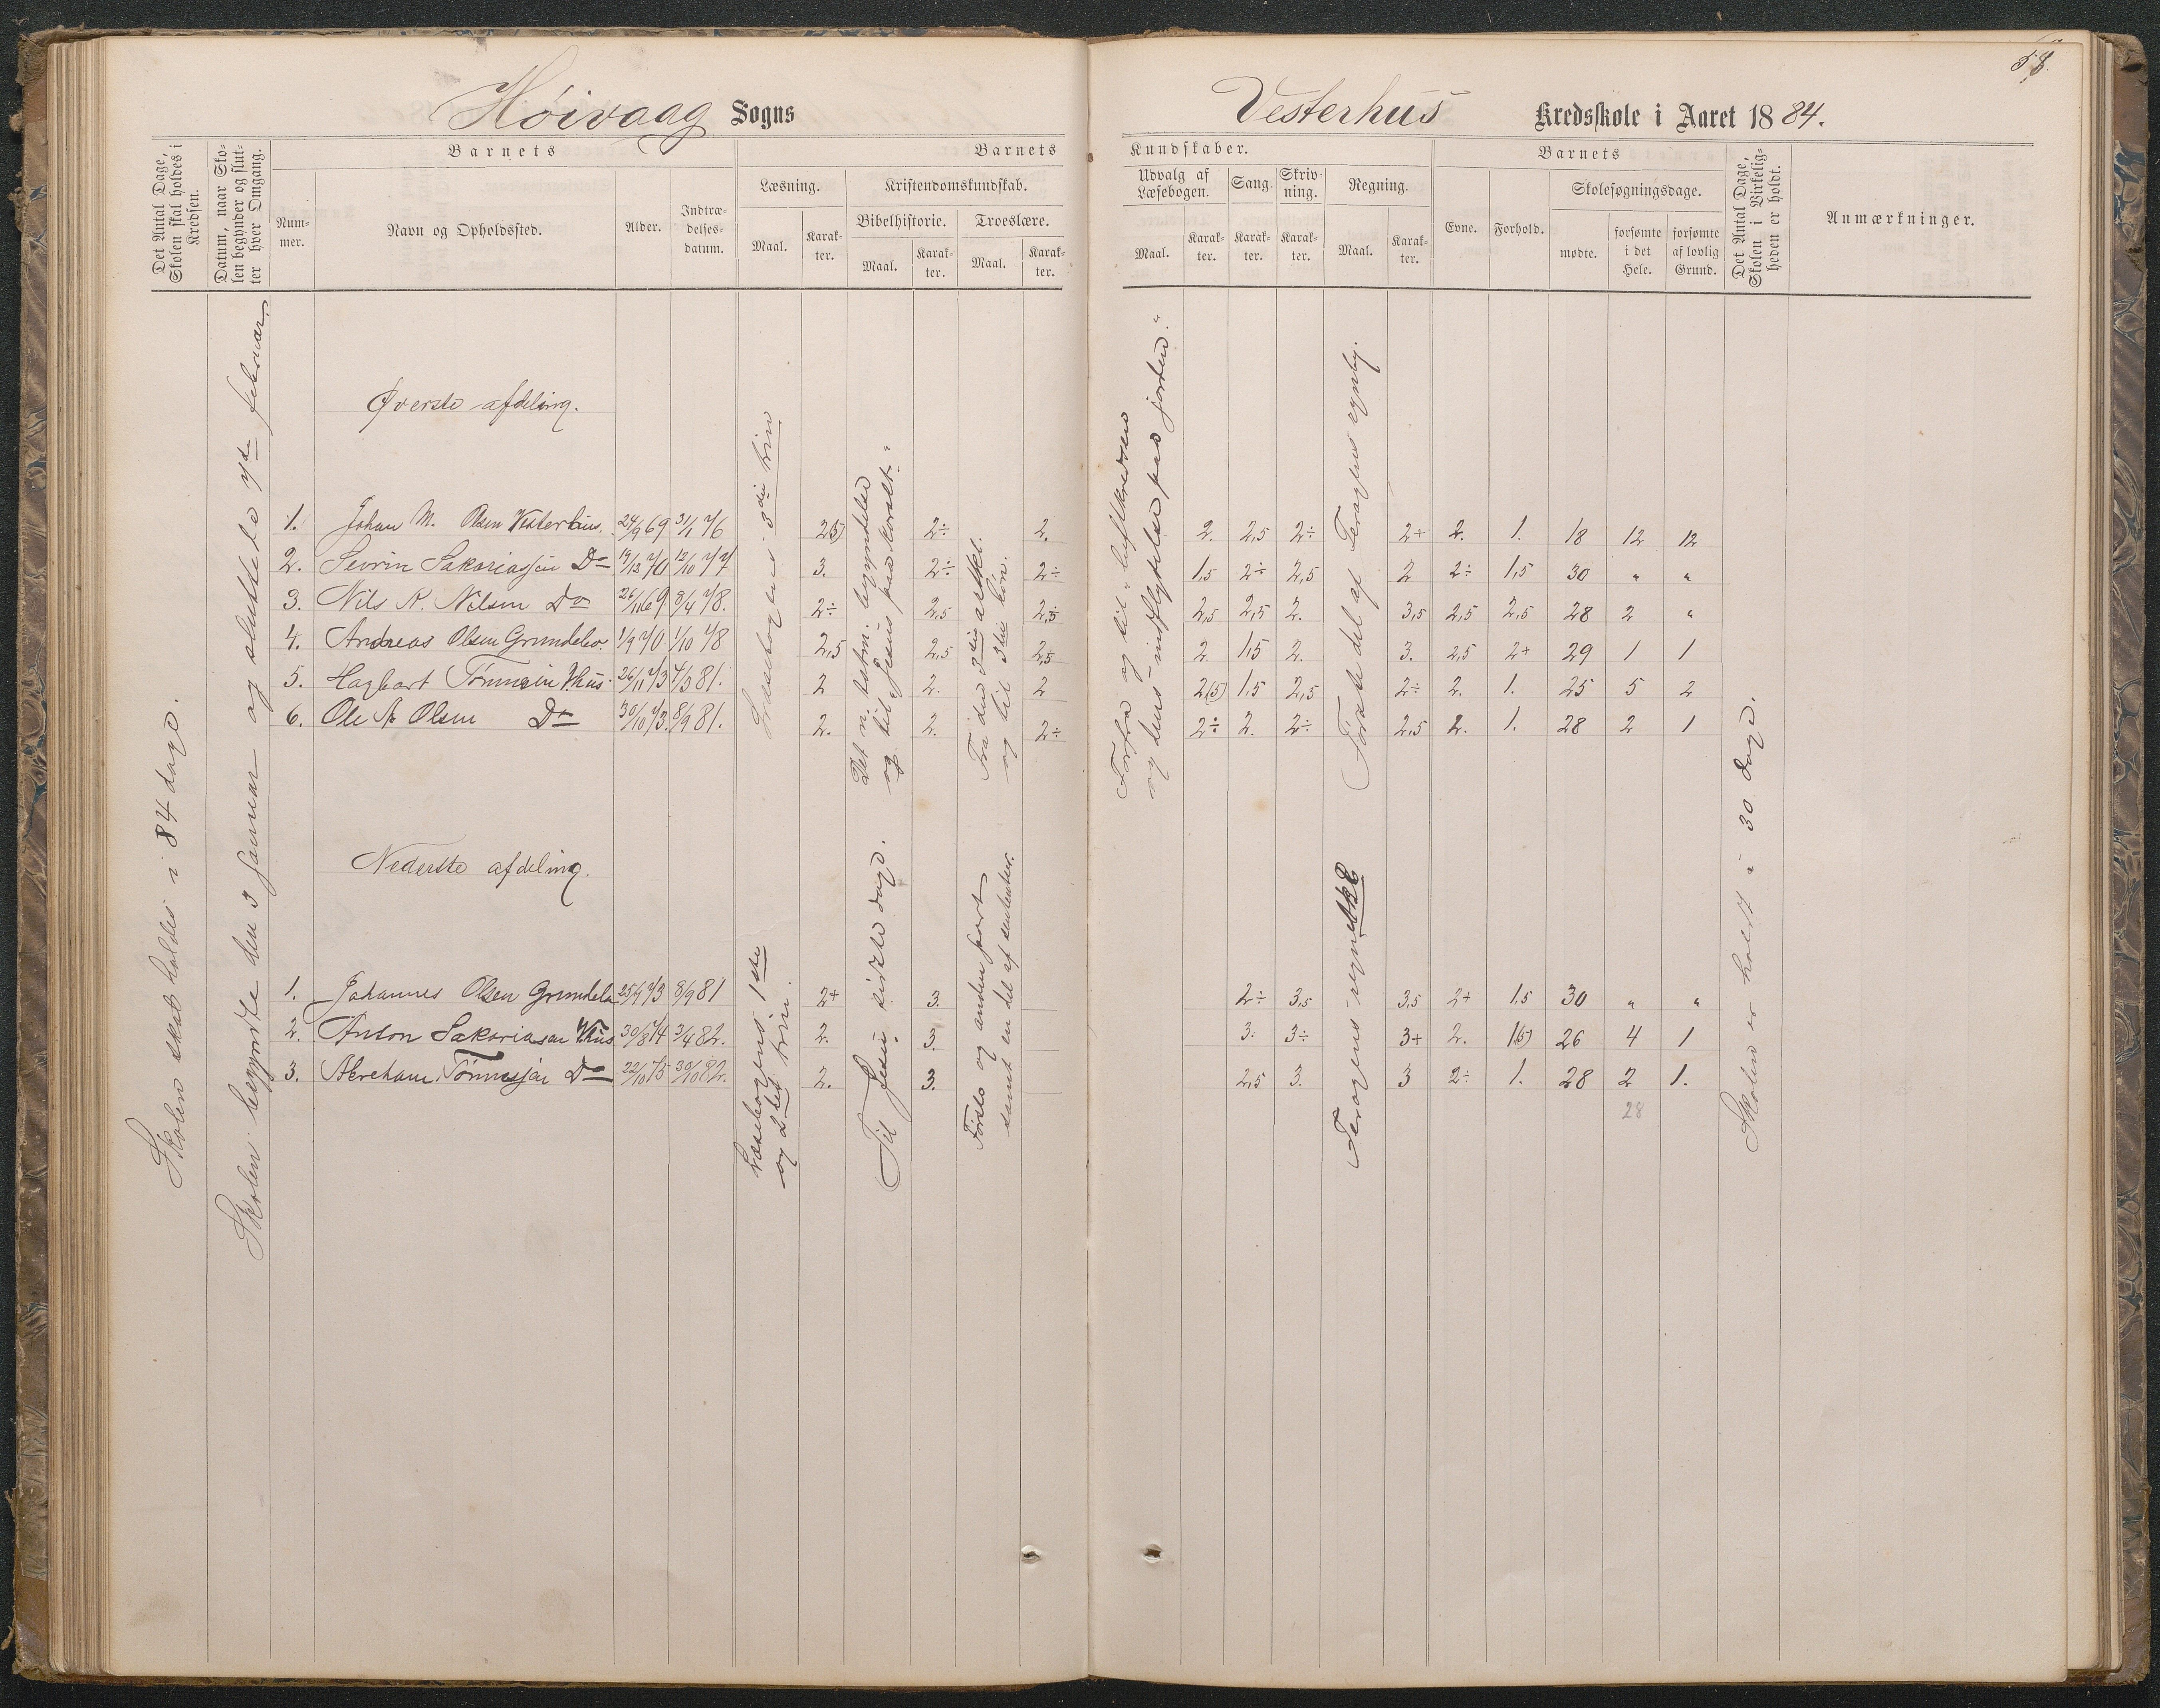 58.
Høivaag Sogns
Vesterhus Kredsskole i Aaret 1884.
Det Antal Dage, Skolen skal holdes i Kredsen.
Datum, naar Skolen begynder og slutter hver Omgang.
Barnets
Nummer.
Navn og Opholdssted.
Alder.
Indtrædelsesdatum.
Barnets
Læsning.
Maal.
Karakter.
Kristendomskundskab.
Bibelhistorie.
Maal.
Karakter.
Troeslære.
Maal.
Karakter.
Kundskaber.
Udvalg af Læsebogen.
Maal.
Karakter.
Sang.
Karakter.
Skrivning.
Karakter.
Regning.
Maal.
Karakter.
Barnets
Evne.
Forhold.
Skolesøgningsdage.
mødte.
forsømte i det Hele.
forsømte af lovlig Grund.
Det Antal Dage, Skolen i Virkeligheden er holdt.
Anmærkninger.
Skolen skal holdes i 84 dage.
Skolen begyndte den 3 januar og sluttede 7de februar.
Øverste afdeling.
Læsebogens 3die trin
Det n. testm. begyndelse
og til „Jesus paa korset."
Fra den 3die artikel
og til 3die bøn.
Forfra og til „luftkredsen
og dens indflydelse paa jorden."
Første del af Feragens regneb.
1. Johan M. Olsen Vesterhus. 24/9 69 31/1 76 2(5) 2÷ 2. 2. 2,5 2÷ 2+ 2. 1. 18 12 12
2. Sevrin Sakariassen Do 19/12 70 12/10 77 3. 2÷ 2÷ 1,5 2÷ 2,5 2 2÷ 1,5 30 „ „
3. Nils K. Nilsen Do 26/11 69 8/4 78. 2÷ 2,5 2,5 2,5 2,5 2. 3,5 2,5 2,5 28 2 „
4. Andreas Olsen Grundels. 1/9 70 1/10 78 2,5 2,5 2,5 2. 1,5 2. 3. 2,5 2+ 29 1 1
5. Hagbart Tønnesen V.hus. 26/11 73 4/3 81. 2 2. 2 2(5) 1,5 2,5 2÷ 2. 1. 25 5 2
6. Ole A. Olsen Do 30/10 73. 8/9 81. 2. 2. 2÷ 2÷ 2. 2÷ 2,5 2. 1. 28 2 1
Nederste afdeling.
Læsebogens 1ste
og 2det trin.
Til Jesu sidste dage.
Første og anden part
samt en del af sentenser.
1. Johannes Olsen Grundels 25/4 73 8/9 81 2+ 3. 2÷ 3,5 3,5 2+ 1,5 30 „ „
2. Anton Sakariasen V.hus 30/8 74 3/4 82. 2. 3. 3. 3÷ 3+ 2. 1(5) 26 4 1
3. Abreham Tønnesen Do 22/10 75 30/10 82. 2. 3. 2,5 3. 3 2÷ 1. 28 2 1.
28
Skolen er holdt i 30 dage.